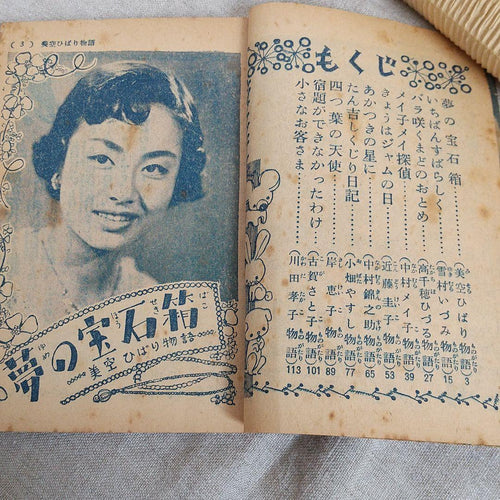 もくじ
夢の宝石箱………美空ひばり物語 3
いちばんすばらしく………雪村いづみ物語 15
バラ咲くまどのおとめ………高千穂ひづる物語 27
メイ子メイ探偵………中村メイ子物語 39
きょうはジャムの日………近藤圭子物語 53
あかつきの星に………中村錦之助物語 65
たん吉しくじり日記………小畑やすし物語 77
四つ葉の天使………岸恵子物語 89
宿題ができなかったわけ………古賀さと子物語 101
小さなお客さま………川田孝子物語 113
(3) 美空ひばり物語
夢の宝石箱
美空ひばり物語